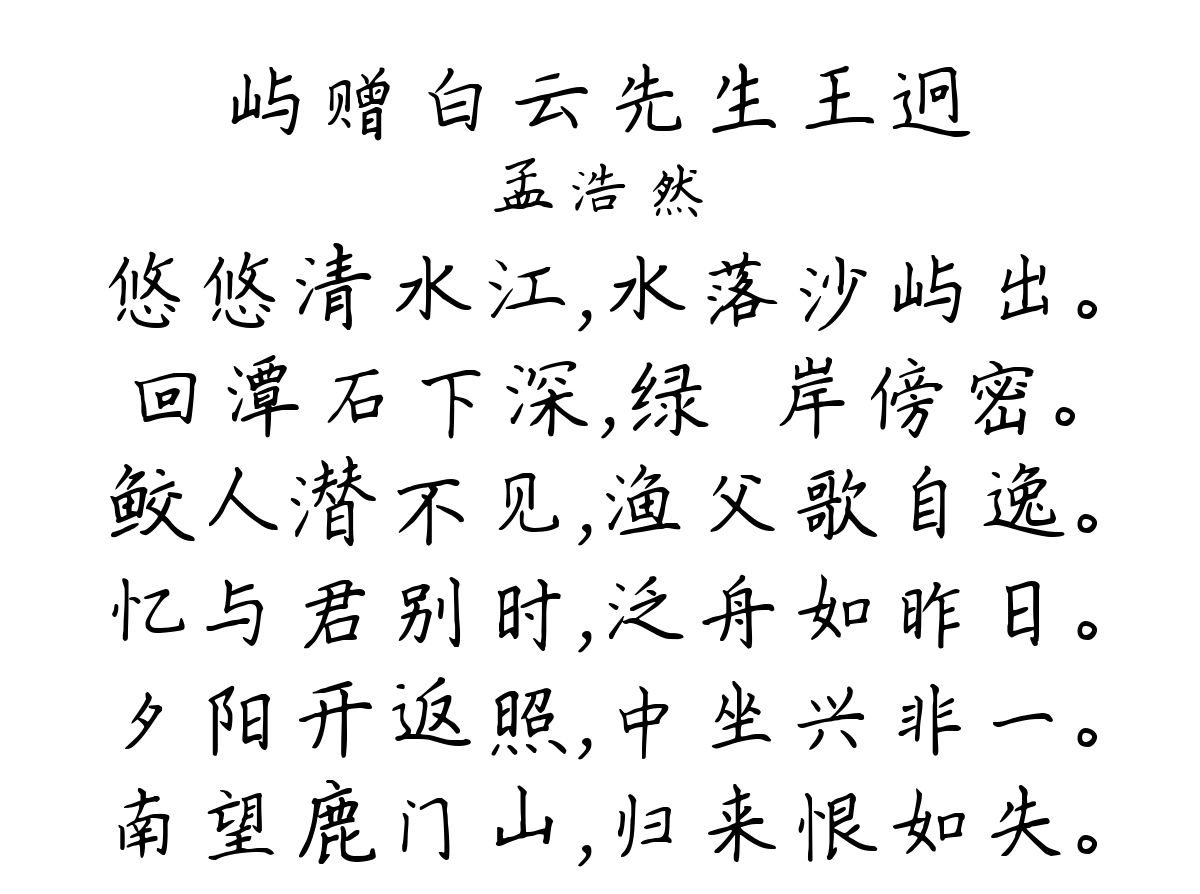 屿赠白云先生王迥
孟浩然
悠悠清水江,水落沙屿出。
回潭石下深,绿 岸傍密。
鲛人潜不见,渔父歌自逸。
忆与君别时,泛舟如昨日。
夕阳开返照,中坐兴非一。
南望鹿门山,归来恨如失。